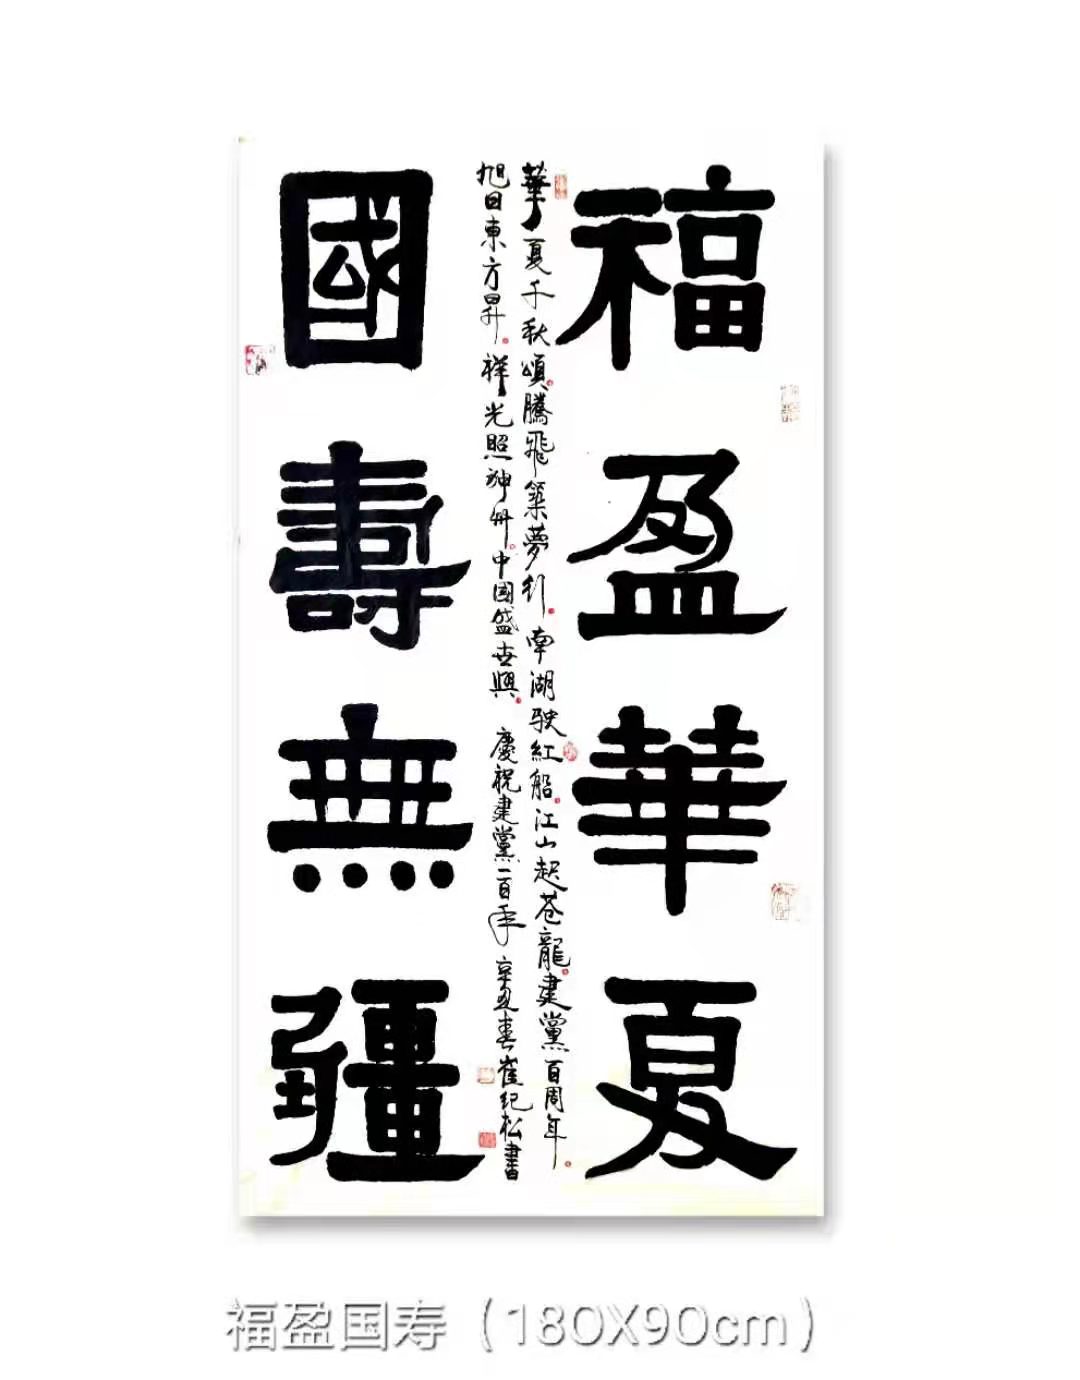 福盈華夏
華夏千秋頌騰飛築夢行南湖駛紅船江山起苍龍建黨百周年
旭日東方昇祥光照神州中国盛世興 慶祝建黨一百年 辛丑春崔纪松書
國壽無疆
福盈国寿（180X90cm）